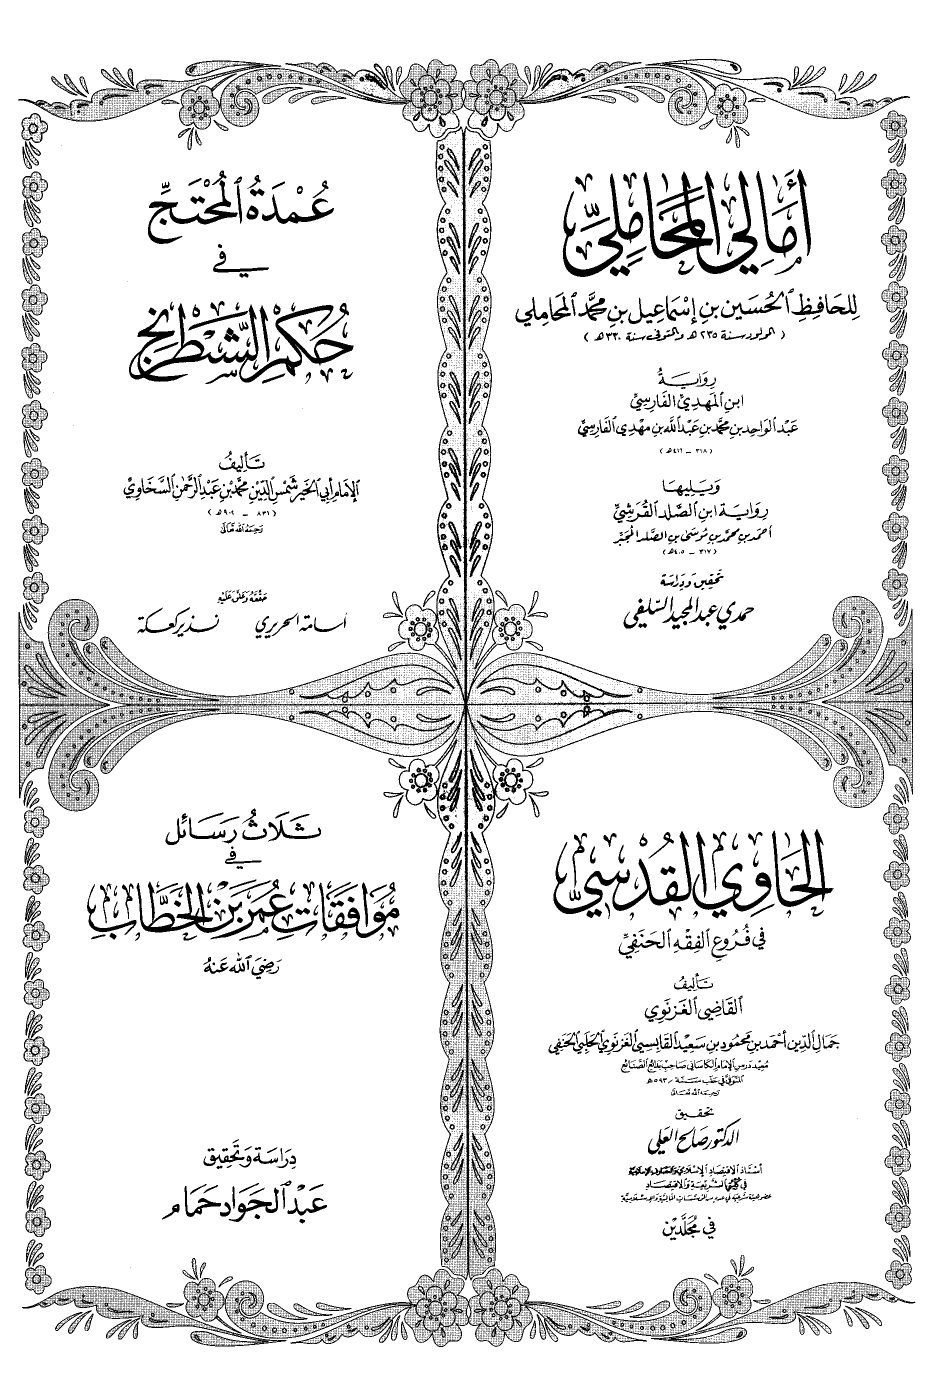 أَمَالِي المَحَامِلِيِّ
لِلحَافِظِ الحُسَيْن بن إسْمَاعِيل بن محمَّد المَحَاملي
(المولود سنة ٢٣٥ هـ والمتوفى سنة ٣٣٠ هـ)
رِوَايَةُ
ابن المَهْدِي الفَارِسِيّ
عَبْد الوَاحِد بن محمَّد بن عَبْد الله بن مهْدِي الفَارسِيّ
(٣١٨ - ٤١٦ هـ)
وَيَليهَا
رِوَايَة ابن الصَّلت القُرَشِيّ
أحْمَد بن محمَّد بن مُوسَى بن الصَّلت المُجَبِّر
(٣١٧ - ٤٠٥ هـ)
تحقيق ودراسَة
حمدي عبد المجيد السّلفي
عُمْدَةُ المُحْتَجِّ
في
حُكْمِ الشَّطْرَنج
تَأليفُ
الإمَام أبي الخَير شَمْسِ الدِّين محمَّد بْن عَبْد الرَّحمن السَّخَاوِيّ
(٨٣١ - ٩٠٢ هـ)
رَحِمَهُ الله تَعَالَى
حَقّقَهُ وَعَلّقَ عَلَيْهِ
أسامة الحريري نذير كعكة
الحَاوِي القُدْسِيّ
في فُرُوعِ الفِقْهِ الحَنَفِيِّ
تَأليفُ
القَاضِي الغَزْنَوِي
جَمَال الدِّين أحْمَد بن محْمُود بن سَعِيد القَابِسِيّ الغَزْنَوِيّ الحَلَبِيّ الحَنَفِي
مُعِيد دَرسِ الإمَام الكاسَاني صَاحِب بَدَائِع الصَّنَائِع
المتَوفَّى في حَلَب سَنَة /٥٩٣ هـ
رَحِمَهُ الله تَعَالَى
تحقيق
الدكتور صالح العَلي
أسْتَاذ الاقتِصَادِ الإسْلَامِيّ وَالمَصَارِف الإسْلاميَّة
في كليَّتي الشَّريعَة وَالاقتِصَاد
في مُجَلَّدَيْن
ثَلَاثُ رَسَائل
في
مُوَافَقَاتِ عُمَرَ بْنِ الخَطَّابِ
رَضِيَ الله عَنهُ
دِرَاسَة وَتَحْقِيق
عَبْد الجَوَاد حَمَام